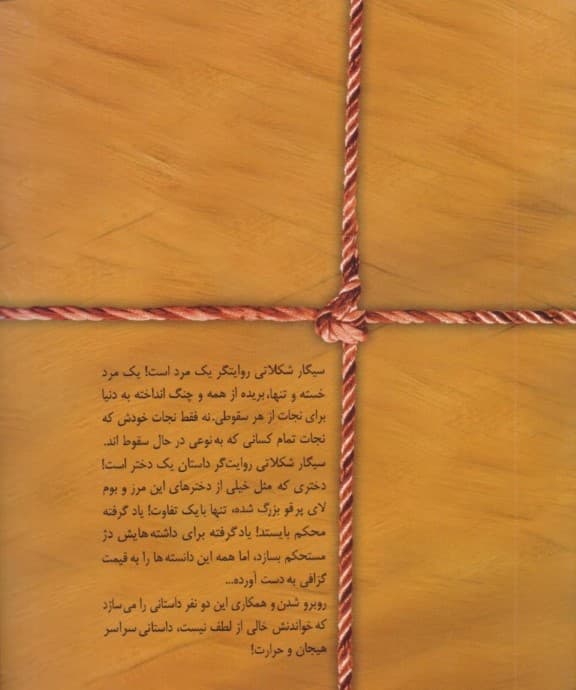 سیگار شکلاتی روایتگر یک مرد است! یک مرد
خسته و تنها، بریده از همه و چنگ انداخته به دنیا
برای نجات از هر سقوطی. نه فقط نجات خودش که
نجات تمام کسانی که به نوعی در حال سقوط اند.
سیگار شکلاتی روایت‌گر داستان یک دختر است!
دختری که مثل خیلی از دخترهای این مرز و بوم
لای پر قو بزرگ شده، تنها با یک تفاوت! یاد گرفته
محکم بایستد! یاد گرفته برای داشته هایش دژ
مستحکم بسازد، اما همه این دانسته ها را به قیمت
گزافی به دست آورده...
روبرو شدن و همکاری این دو نفر داستانی را می سازد
که خواندنش خالی از لطف نیست، داستانی سراسر
هیجان و حرارت!